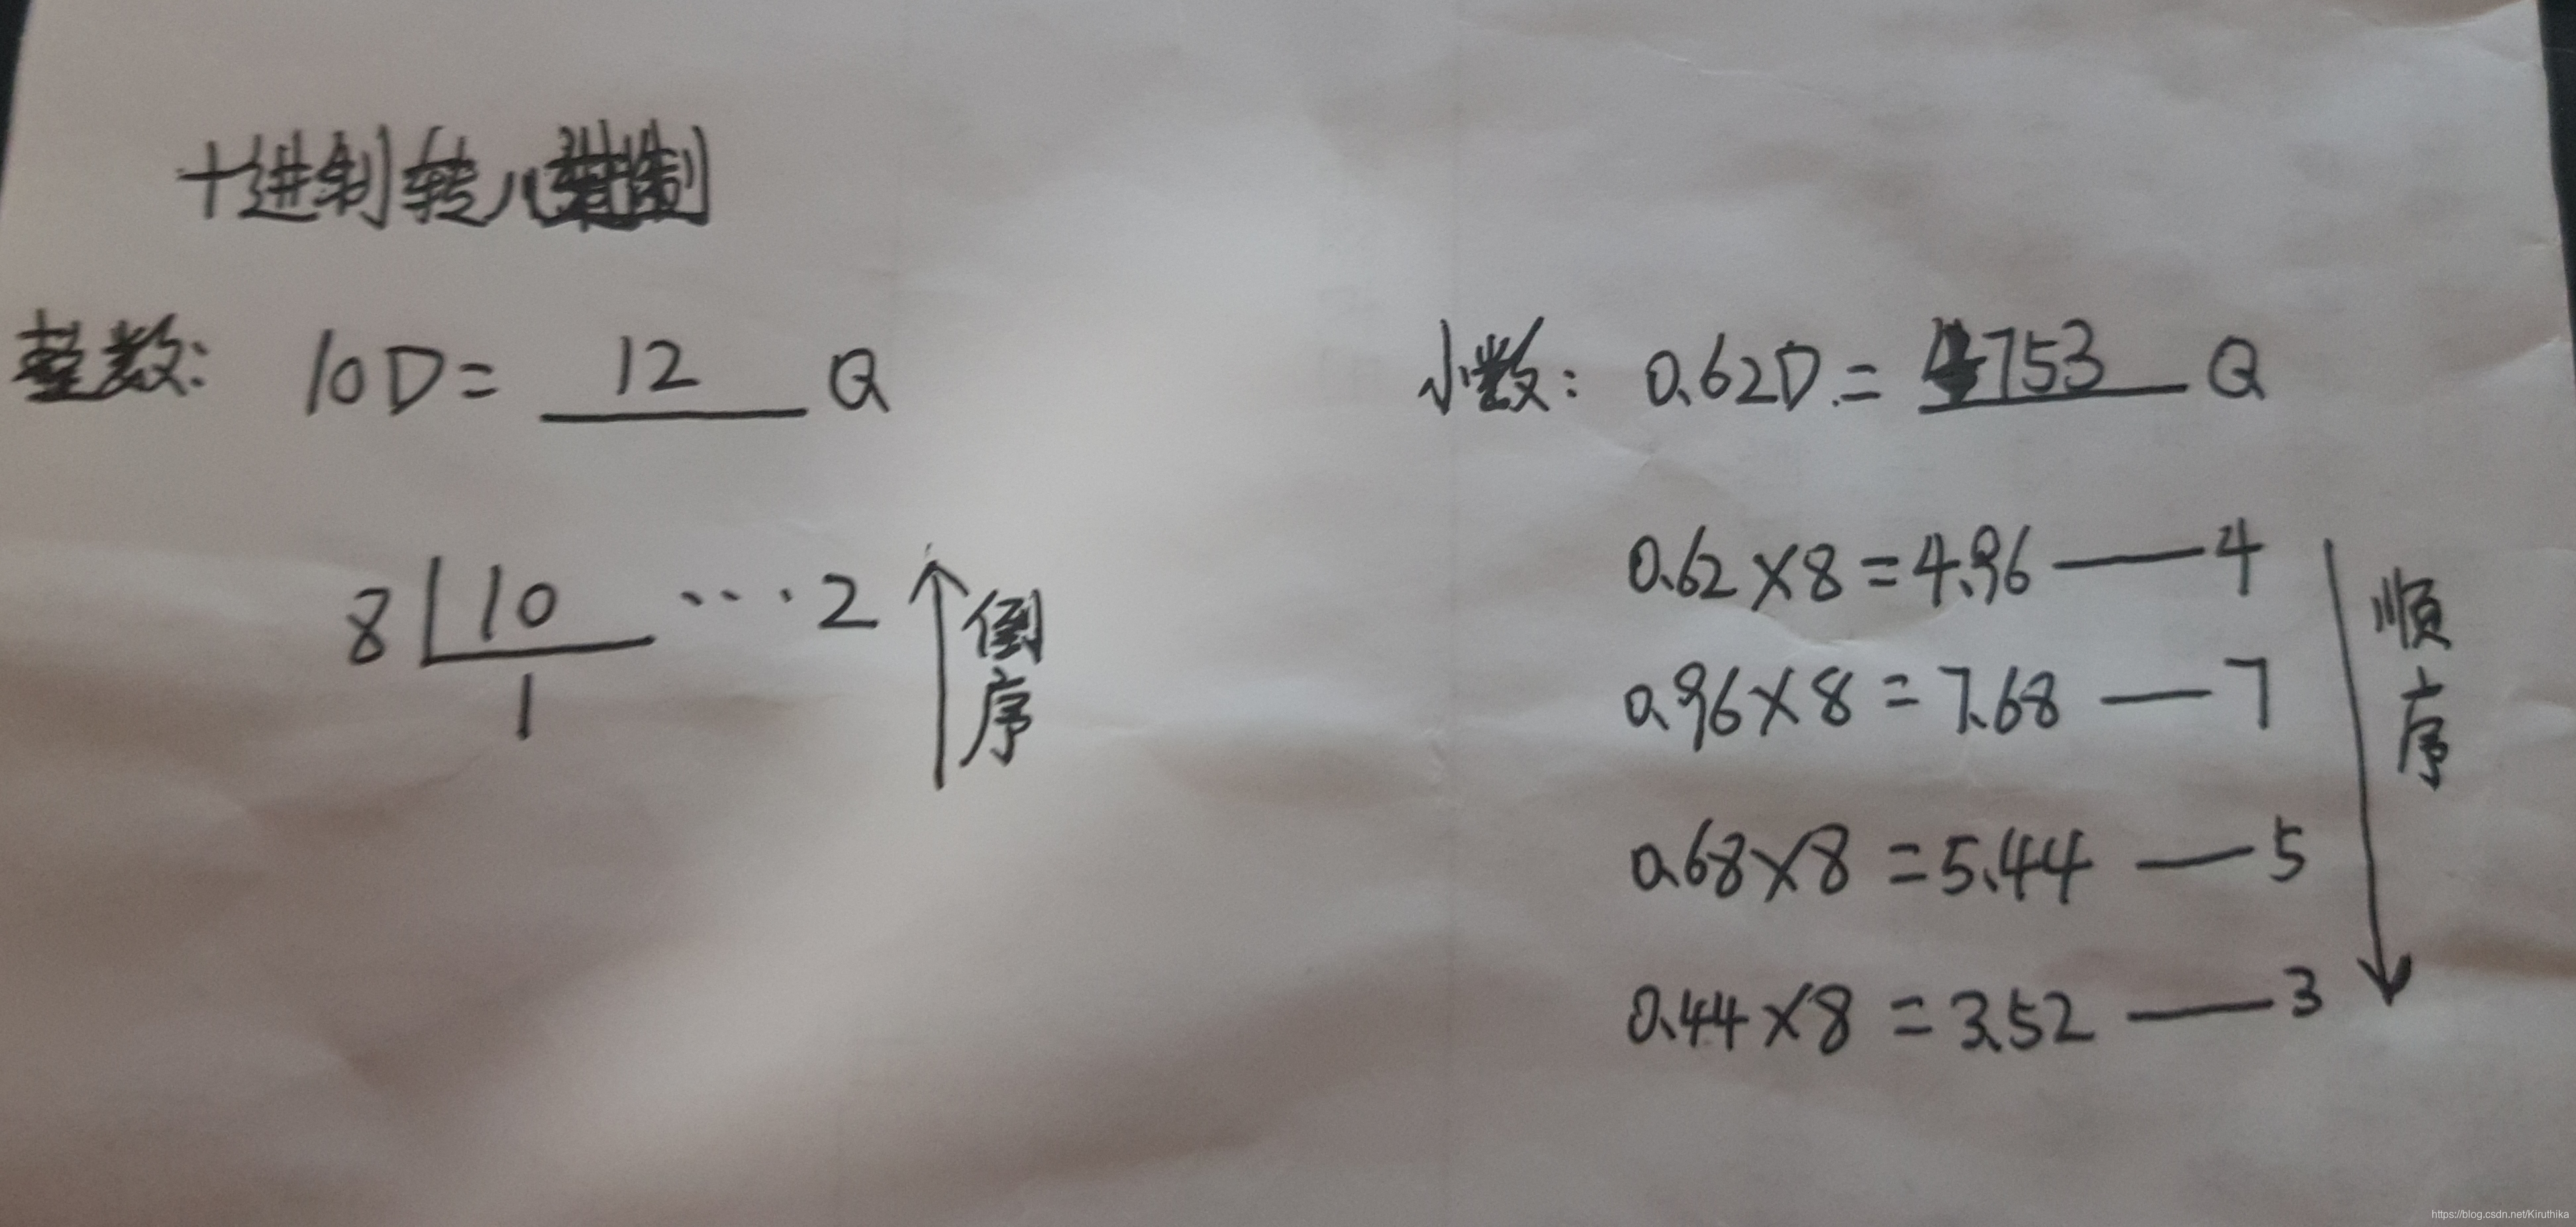 十进制转八进制
整数: 10D = 12 Q
8 10 ... 2
1
倒序
小数: 0.62D = 4753 Q
0.62 × 8 = 4.96 — 4
0.96 × 8 = 7.68 — 7
0.68 × 8 = 5.44 — 5
0.44 × 8 = 3.52 — 3
顺序
https://blog.csdn.net/Kiruthika